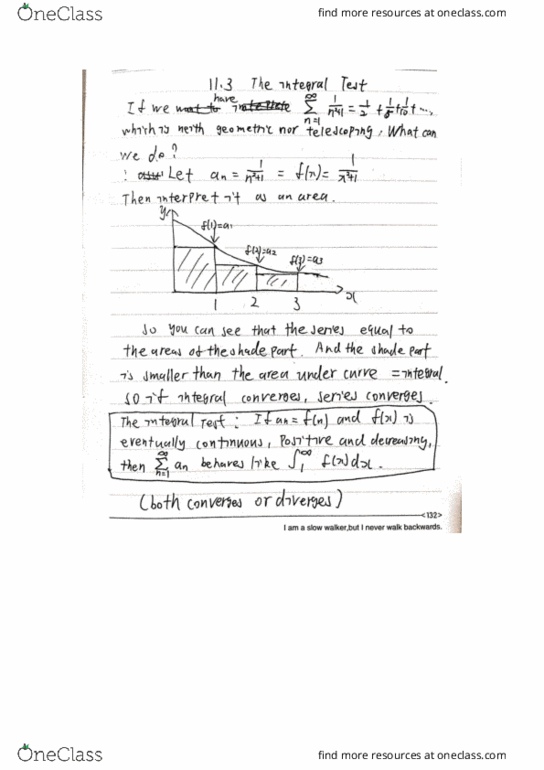 OneClass
find more resources at oneclass.com
11.3 The integral Test
have
If we want to ∑ n=1 ∞ 1/n²+1 = 1/2 + 1/5 + 1/10 + ...,
which is neith geometric nor telescoping. What can
we do?
: Let an = 1/n²+1 = f(n) = 1/x²+1
Then interpret it as an area.
y
f(1)=a1
f(2)=a2
f(3)=a3
1 2 3 x
so you can see that the series equal to
the areas of the shade part. And the shade part
is smaller than the area under curve = integral.
so if integral converges, series converges.
The integral Test: If an = f(n) and f(x) is
eventually continuous, positive and decreasing,
then ∑ n=1 ∞ an behaves like ∫1 ∞ f(x)dx.
(both converges or diverges)
<132>
I am a slow walker,but I never walk backwards.
OneClass
find more resources at oneclass.com